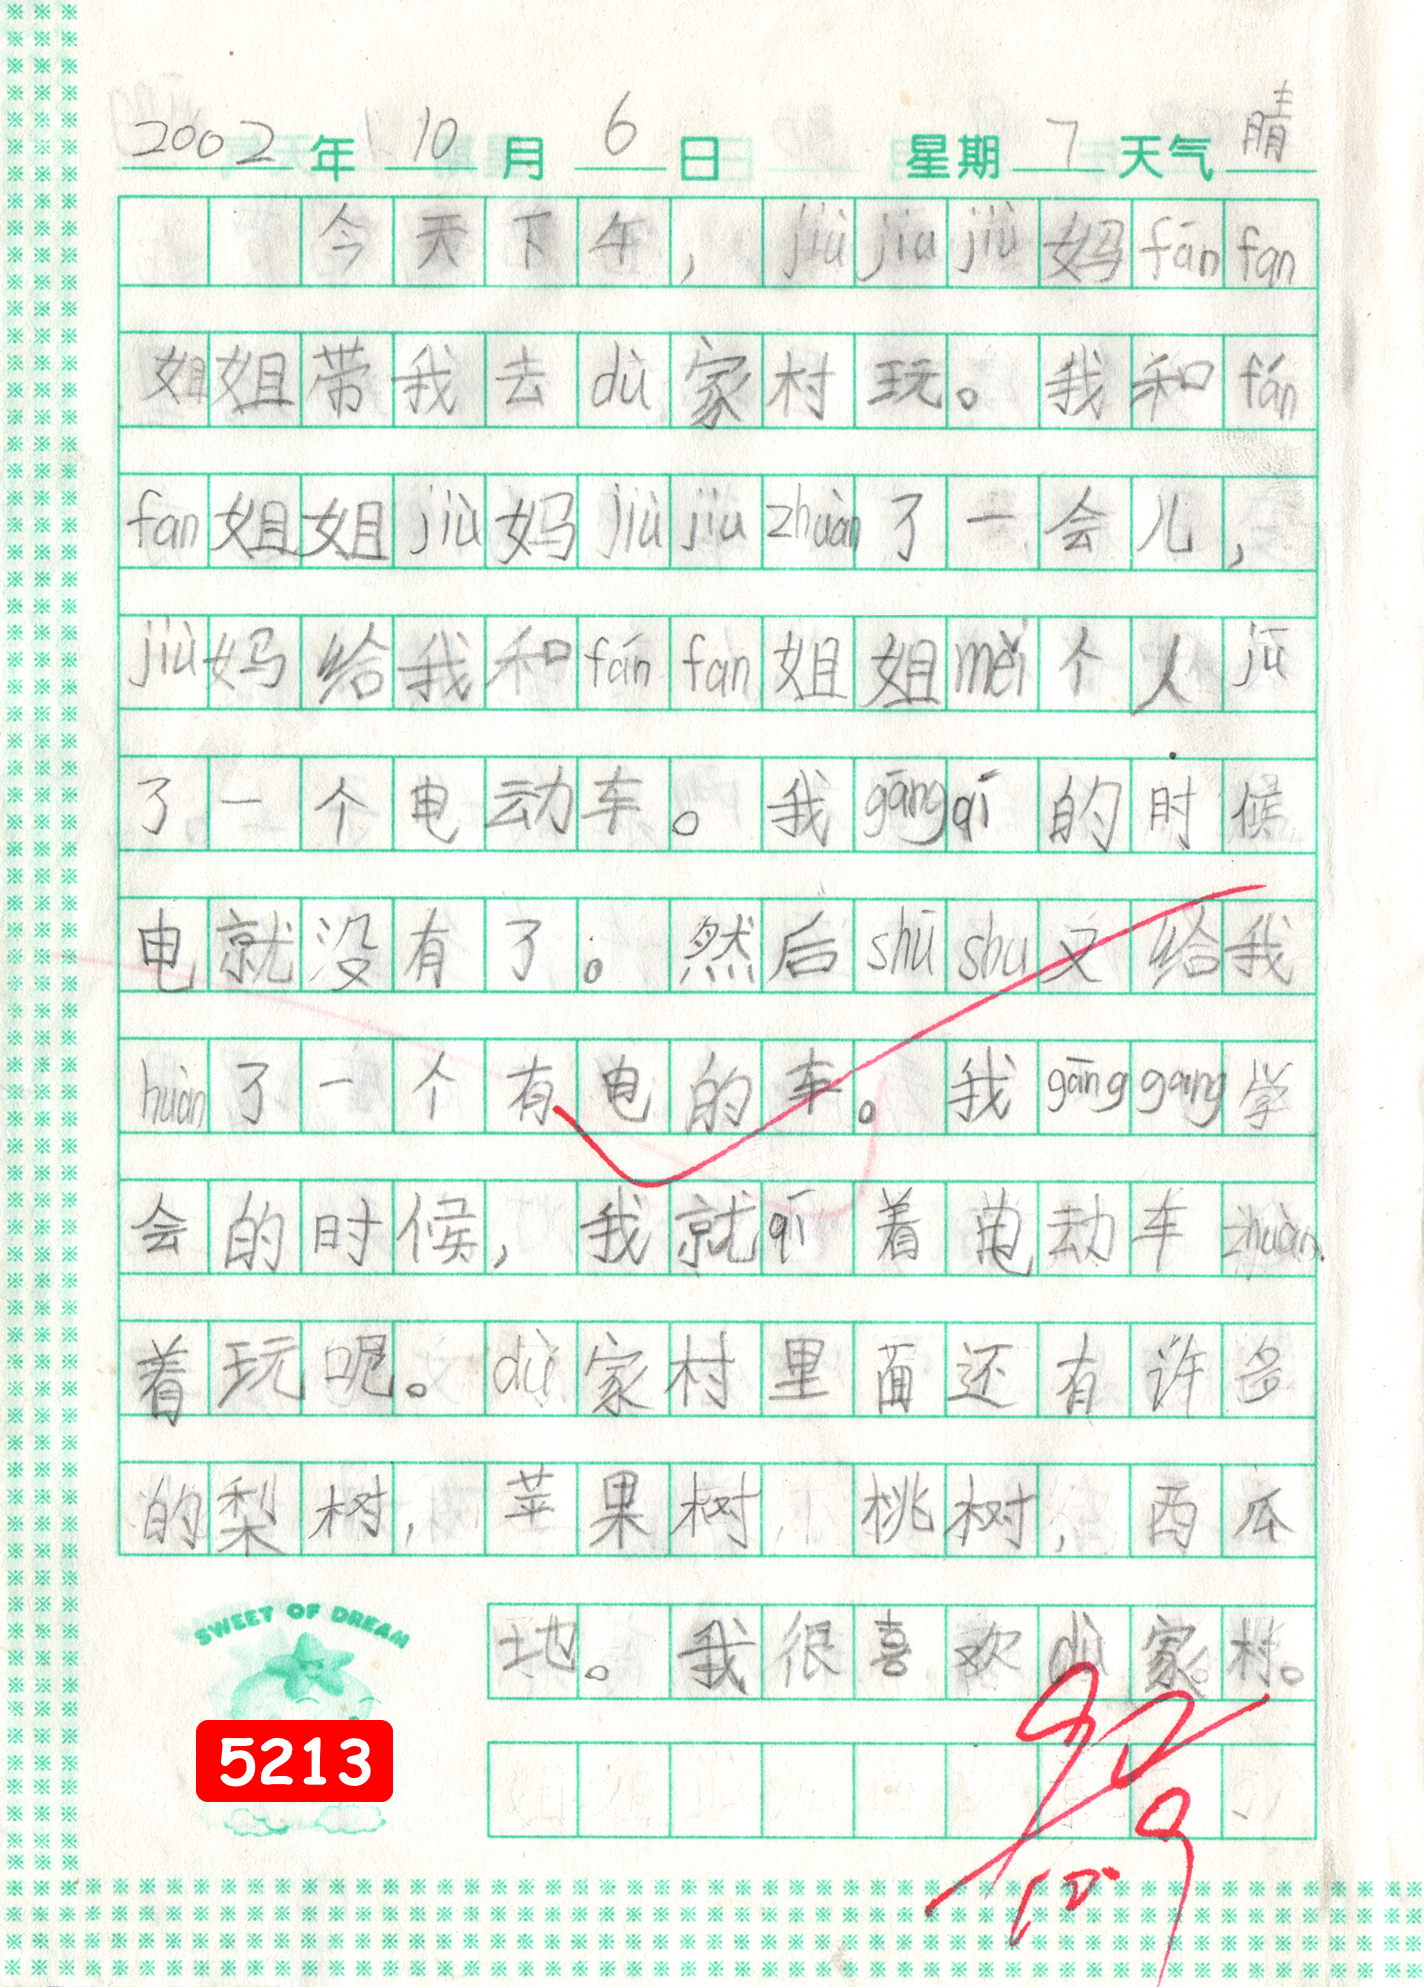 2002年10月6日 星期7天气晴
今天下午，jiù jiu jiù妈fān fan
姐姐带我去dù家村玩。我和fán
fan姐姐jiù妈jiù jiu zhuàn了一会儿，
jiù妈给我和fán fan姐姐měi个人jū
了一个电动车。我gāng qí的时候
电就没有了。然后shū shu又给我
huàn了一个有电的车。我gāng gang学
会的时候，我就qí着电动车zhuàn
着玩呢。dù家村里面还有许多
的梨树，苹果树，桃树，西瓜
地。我很喜欢dù家村。
10.9
SWEET OF DREAM
5213